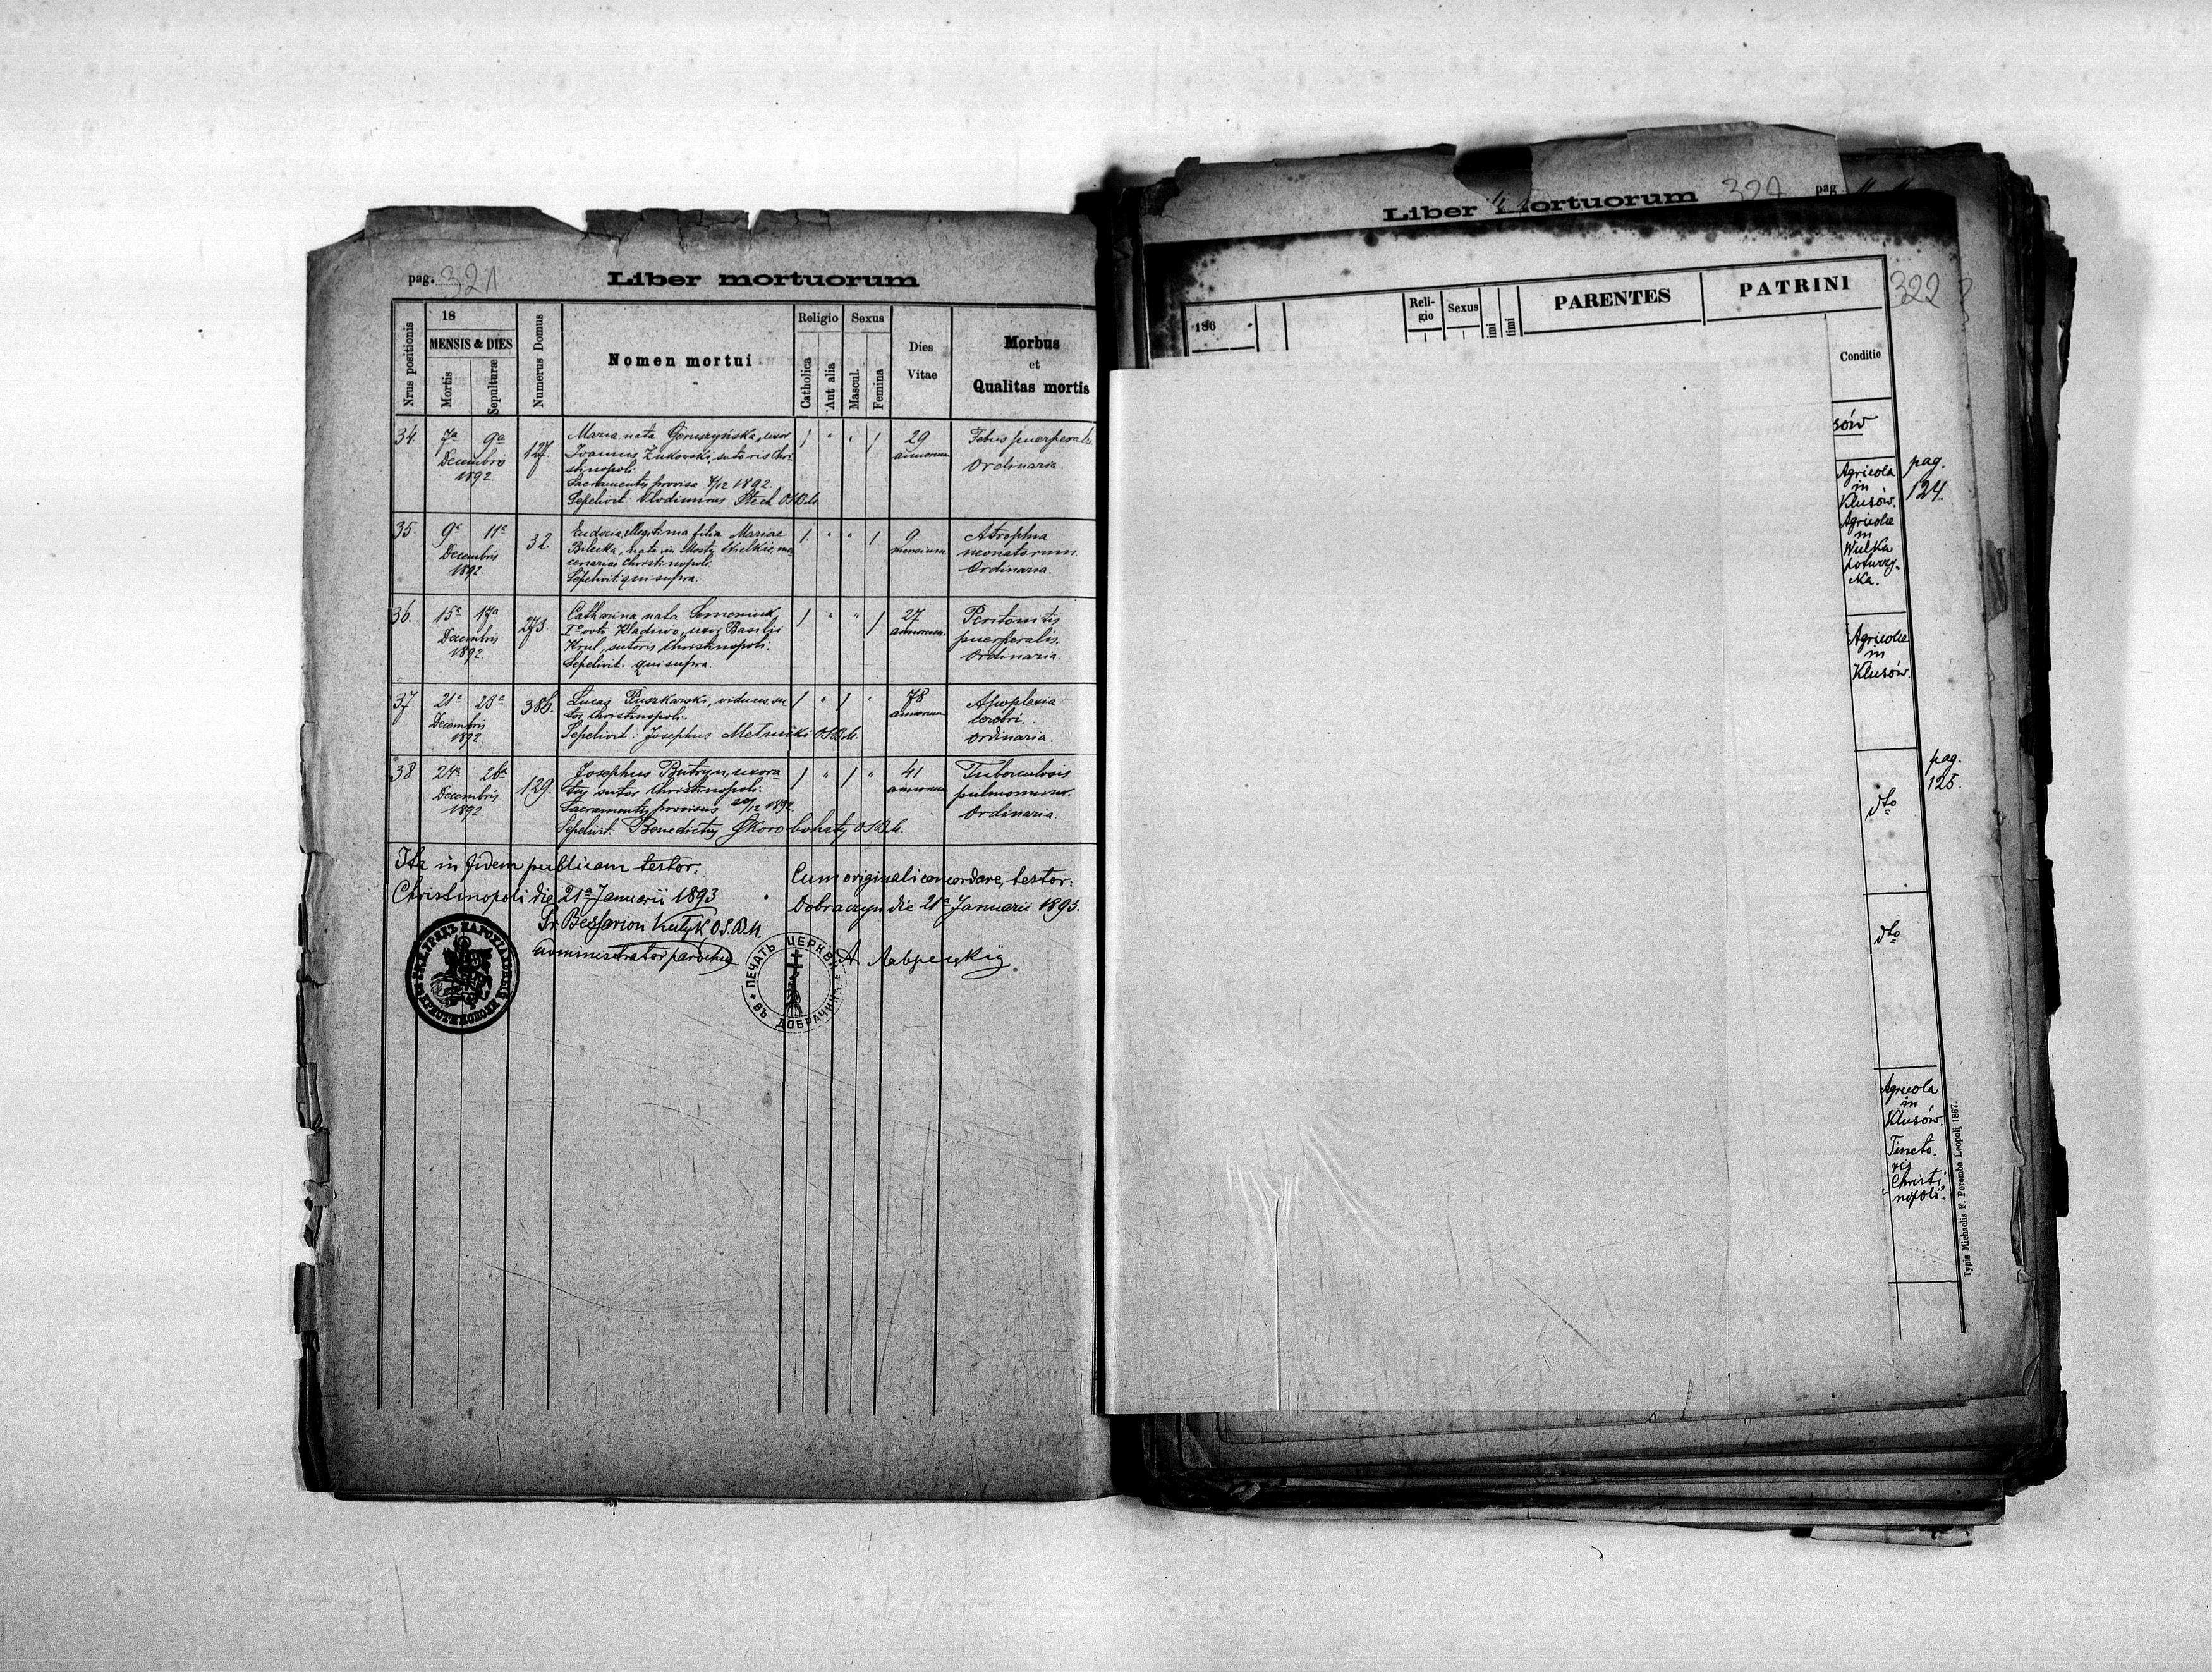 pag. 321
Liber mortuorum
Nrus positionis
18
MENSIS & DIES
Mortis
Sepulturæ
Numerus Domus
Nomen mortui
Religio
Catholica
Aut alia
Sexus
Mascul.
Femina
Dies
Vitae
Morbus
et
Qualitas mortis
34. 7a 9a
Decembris
1892.
127.
Maria nata Gruszyńska, uxor
Joannis Żukowski, sutoris Chri
stinopoli.
Sacramentis provisa 7/12 1892.
Sepelivit: Vlodimirus Stech OSBM.
/ " " /
29
annorum
Febris puerperalis
Ordinaria.
35 9a 11a
Decembris
1892
32.
Eudocia, illegitima filia Mariae
Bilecka, nata in Mosty Wielkie, mer
cenariae Christinopoli.
Sepelivit: qui supra.
/ " " /
9
mensium
Atrophia
neonatorum.
Ordinaria.
36. 15a 17a
Decembris
1892.
273.
Catharina nata Semeniuk,
Io voto Kladiwo, uxor Basilii
Krul, sutoris Christinopoli.
Sepelivit: qui supra.
/ " " /
27
annorum.
Peritonitis
puerperalis.
Ordinaria.
37 21a 23a
Decembris
1892.
386.
Lucas Puszkarski, viduus, su
tor Christinopoli.
Sepelivit: Josephus Metnicki OSBM.
/ " / "
78
annorum
Apoplexia
cerebri.
Ordinaria.
38 24a 26a
Decembris
1892.
129.
Josephus Butryn, uxora
tus sutor Christinopoli.
Sacramentis provisus 20/12 1892.
Sepelivit: Benedictus Skorobohaty OSBM.
/ " / "
41
annorum
Tuberculosis
pulmonum.
Ordinaria.
Ita in fidem publicam testor.
Christinopoli die 21a Januarii 1893
Pr. Bessarion Kutyk O.S.B.M.
administrator parochiae
Cum originali concordare, testor:
Dobraczyn die 21a Januarii 1893.
А Лаврецкій
ПЕЧАТЬ ЦЕРКВИ
ВЪ ДОБРАЧИНѢ
Liber mortuorum
pag
322
186 .
Reli-
gio
Sexus
imi
timi
PARENTES
PATRINI
Conditio
sów
Agricola
in
Klusów.
Agricolæ
in
Wulka
poturzy-
cka.
pag.
124.
Agricolæ
in
Klusów.
dto
pag.
125.
dto
Agricola
in
Klusów.
Tincto-
ris
Christi
nopoli.
Typis Michaelis F. Poremba Leopoli 1867.